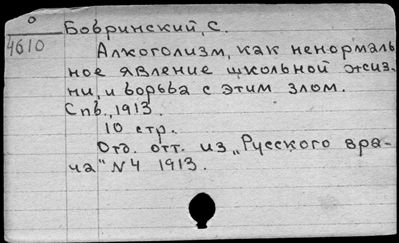 о
4610
Бобринский, С.
Алкоголизм, как ненормаль
ное явление школьной жиз-
ни, и борьба с этим злом.
Спб., 1913.
10 стр.
Отд. отт. из „Русского вра-
ча" N4 1913.